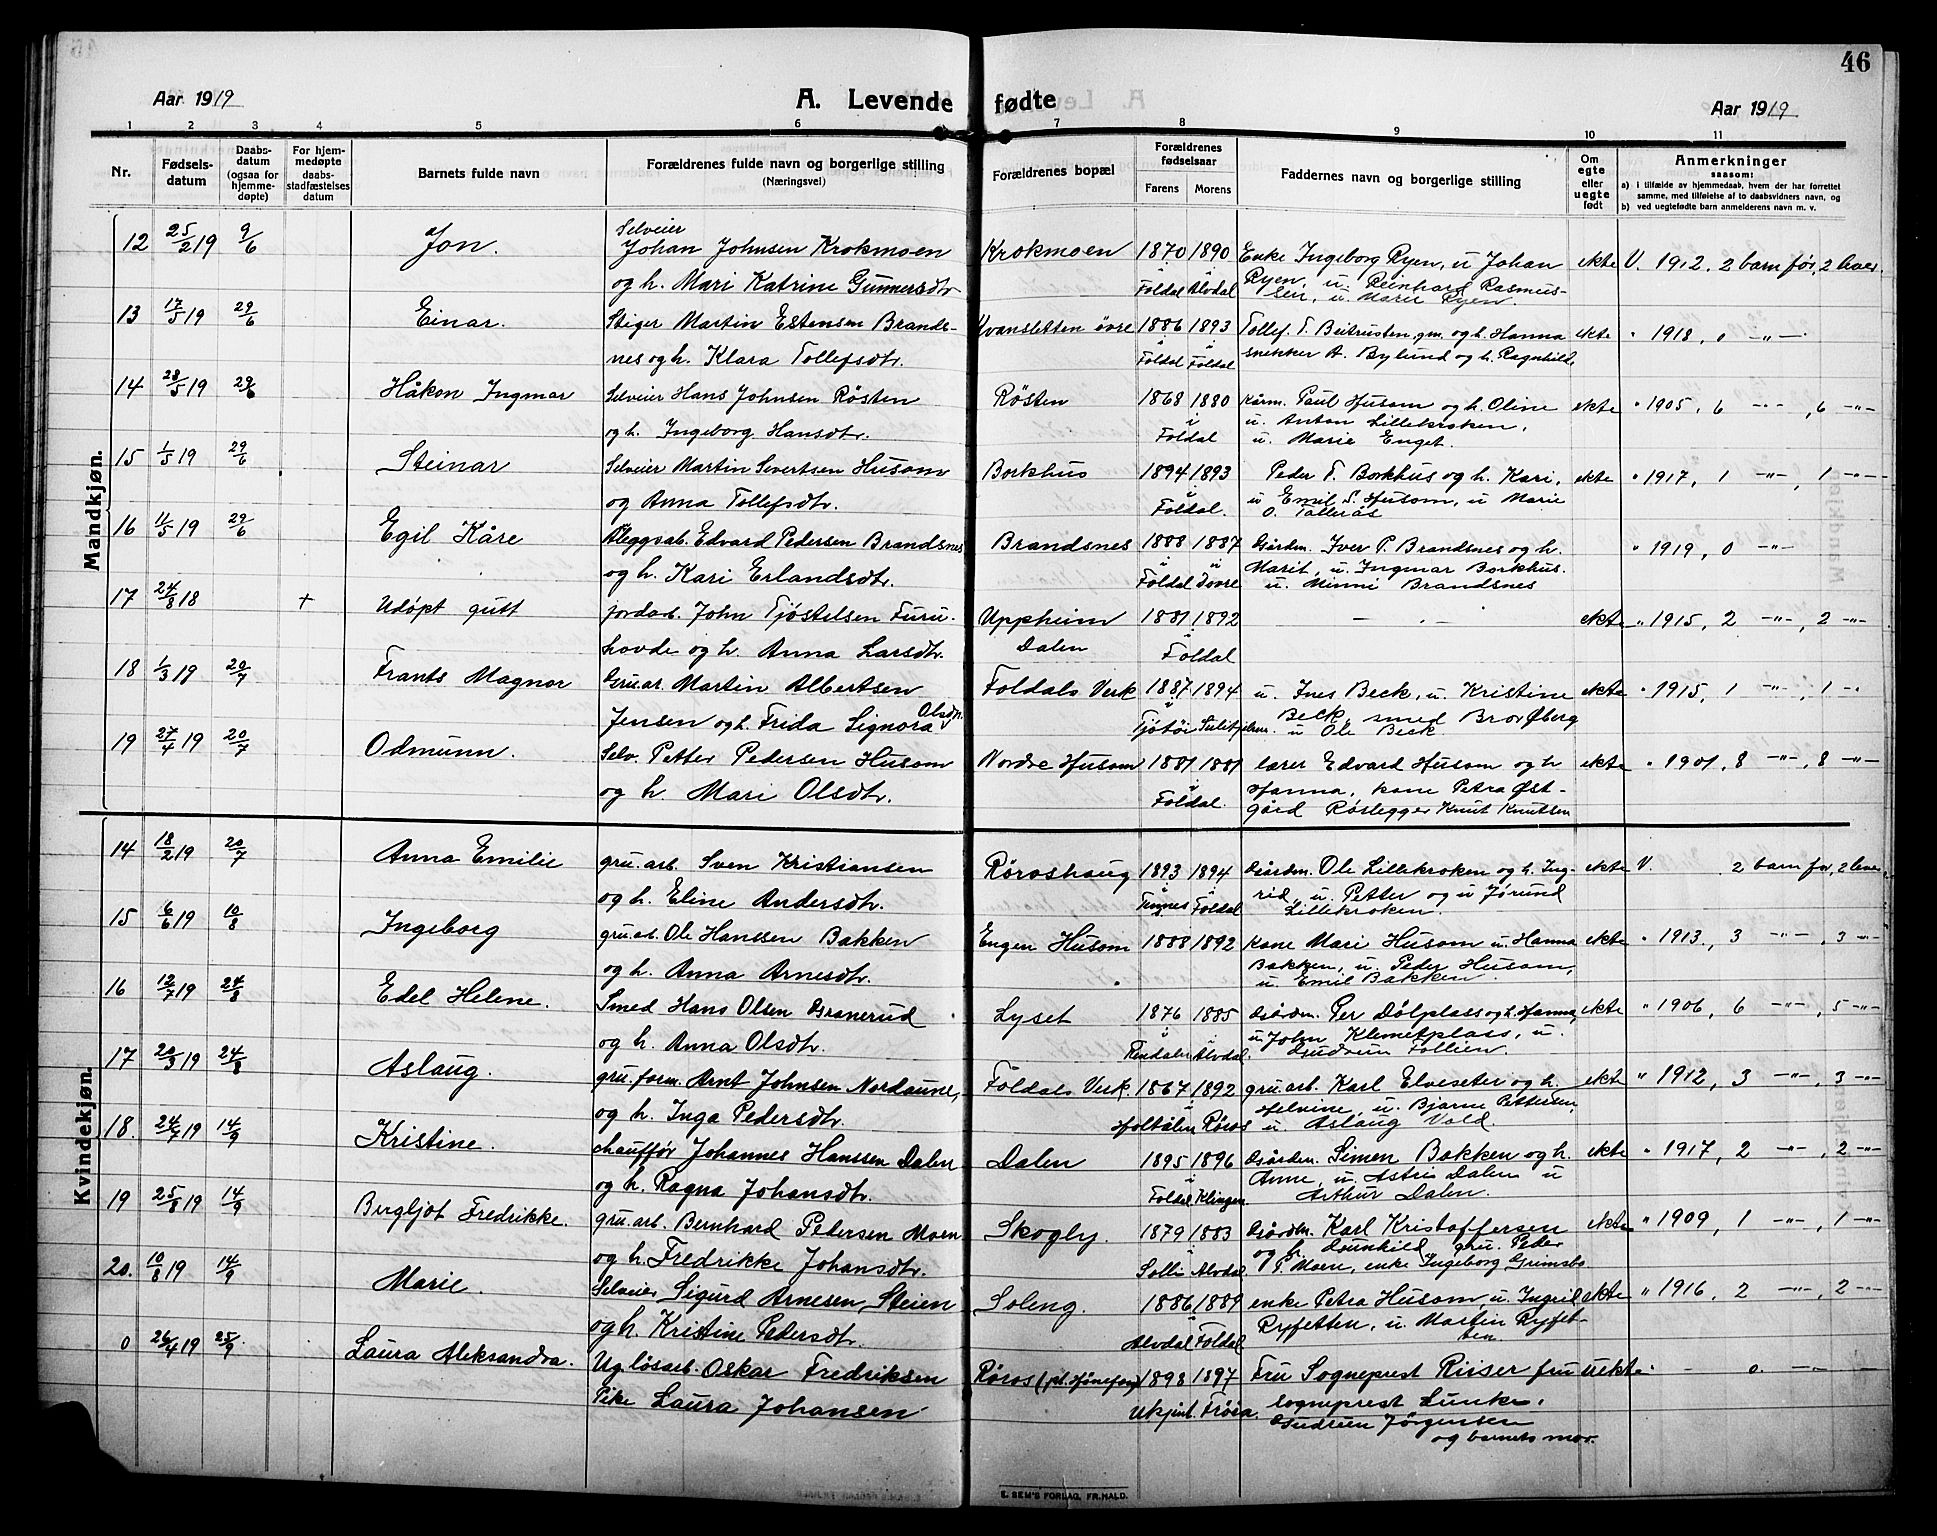 46
Aar 1919
A. Levende fødte
Aar 1919
1 2 3 4 5 6 7 8 9 10 11
Nr.
Fødsels-
datum
Daabs-
datum
(ogsaa for
hjemme-
døpte)
For hjem-
medøpte
daabs-
stadfæstelses
datum
Barnets fulde navn
Forældrenes fulde navn og borgerlige stilling
(Næringsvei)
Forældrenes bopæl
Forældrenes
fødselsaar
Farens Morens
Faddernes navn og borgerlige stilling
Om
egte
eller
uegte
født
Anmerkninger
saasom:
a) i tilfælde av hjemmedaab, hvem der har forrettet
samme, med tilføielse af to daabsvidners navn, og
b) ved uegtefødte barn anmelderens navn m. v.
Mandkjøn.
12 25/2 19 9/6 Jon. Selveier
Johan Johnsen Krokmoen Krokmoen 1870 1890 Enke Ingeborg Ryen, u Johan ekte V. 1912, 2 barn før, 2 lever.
og h. Mari Katrine Gunnersdtr Foldal Alvdal Ryen, u. Reinhard Rasmus-
sen, u. Marie Ryen.
13 17/5 19 29/6 Einar. Stiger Martin Estensen Brands- Kvansletten övre 1886 1893 Tollef. T. Beitrusten, gm. og h. Hanna ekte " 1918, 0 -"-
nes og h. Klara Tollefsdtr. Foldal Foldal snekker A. Bylund og h. Ragnhild.
14 28/5 19 29/6 Håkon Ingmar Selveier Hans Johnsen Røsten Røsten 1868 1880 Kårm. Paul Husom og h. Oline ekte " 1905, 6 -"-, 6 -"-
og h. Ingeborg Hansdtr. i Foldal u. Anton Lillekroken,
u. Marie Enget.
15 1/5 19 29/6 Steinar Selveier Martin Sivertsen Husom Borkhus 1894 1893 Peder T. Borkhus og h. Kari, ekte " 1917, 1 -"-, 1 -"-
og Anna Tollefsdtr. Foldal. u Emil S. Husom, u Marie
O. Tallerås
16 11/5 19 29/6 Egil Kåre Edvard Pedersen Brandsnes Brandsnes 1888 1887 Gårdm. Iver P. Brandsnes og h. " 1919, 0 -"-
og h. Kari Erlandsdtr. Foldal Dovre Marit, u. Ingmar Borkhus.
u. Minni Brandsnes
17 24/8 18 + Udöpt gutt jordarb. John Tjöstelsen Furu- Uppheim 1881 1892 - . - ekte " 1915, 2 -"-, 2 -"-
hovde og h. Anna Larsdtr. Dalen Foldal
18 1/3 19 20/7 Frants Magnor Gru.ar. Martin Albertsen Foldals Verk 1887 1894 u. Ines Beck, u. Kristine ekte " 1915, 1 -"-, 1 -"-
Jensen og h. Frida Signora Olsdtr. Tjötöi Sulitjelma. Beck, smed Bror Øberg
u Ole Beck.
19 27/4 19 20/7 Odmunn. Selv. Petter Pedersen Husom Nordre Husom 1881 1881 lærer Edvard Husom og h ekte " 1901, 8 -"-, 8 -"-
og h. Mari Olsdtr. Foldal. Hanna, kone Petra Øst-
gård Røslegger Knut Knutsen
Kvindekjøn.
14 18/2 19 20/7 Anna Emilie gru.arb. Sven Kristiansen Röroshaug 1893 1894 Gårdm. Ole Lillekroken og h. Ing- ekte V. 2 barn før, 2 lever.
og h. Eline Andersdtr. Foldal rid, u. Petter og u Jørund
Lillekroken.
15 6/6 19 10/8 Ingeborg gru.arb. Ole Hanssen Bakken Engen Husom 1888 1892 Kone Mari Husom u. Hanna ekte " 1913, 3 -"-, 3 -"-
og h. Anna Arnesdtr. Bakken, u. Peder Husom,
u. Emil Bakken.
16 12/7 19 24/8 Edel Helene. Smed Hans Olsen Granerud Lyset 1876 1885 Gårdm. Per Dölplass og h. Hanna, ekte " 1906, 6 -"-, 5 -"-
og h. Anna Olsdtr. Rendalen Alvdal. u John Klemetplass, u.
Gudrun Follien.
17 20/3 19 24/8 Aslaug. gru.form. Arnt Johnsen Nordaune, Foldals Verk. 1867 1892 gru.arb. Karl Elveseter og h. ekte " 1912, 3 -"-, 3 -"-
og h. Inga Pedersdtr. Holtålen Röros Helvine, u. Bjarne Pettersen,
u Aslaug Vold
18. 24/7 19 14/9 Kristine. chauffør Johannes Hanssen Dalen Dalen 1895 1896 Gårdm. Simen Bakken og h. ekte " 1917, 2 -"-, 2 -"-
og h. Ragna Johansdtr. Foldal Klingen Anne, u. Astri Dalen u
Arthur Dalen.
19 25/8 19 14/9 Bergljot Fredrikke. gru.arb. Bernhard Pedersen Moen Skogly. 1879 1883 Gårdm. Karl Kristoffersen ekte " 1909, 1 -"-, 1 -"-
og h. Fredrikke Johansdtr. Solli Alvdal. og h. Gunhild gru. Peder
P. Moen, enke Ingeborg Grimsbo
20. 10/8 19 14/9 Marie. Selveier Sigurd Arnesen Steien Soleng. 1886 1889 enke Petra Husom, u. Ingrid ekte " 1916, 2 -"-, 2 -"-
og h. Kristine Pedersdtr. Alvdal Foldal Ryfetten, u. Martin Ryfet-
ten.
0 26/4 19 25/9 Laura Aleksandra. Ug. løsarb. Oskar Fredriksen Röros (pt. Hønefoss) 1898 1897 Fru Sogneprest Riiser fru uekte - 0. -"- -
Pike Laura Johansen Ukjent. Fröia. sogneprest Lunke,
Gudrun Jørgensen
og barnets mor.
E. SEM'S FORLAG, FR.HALD.